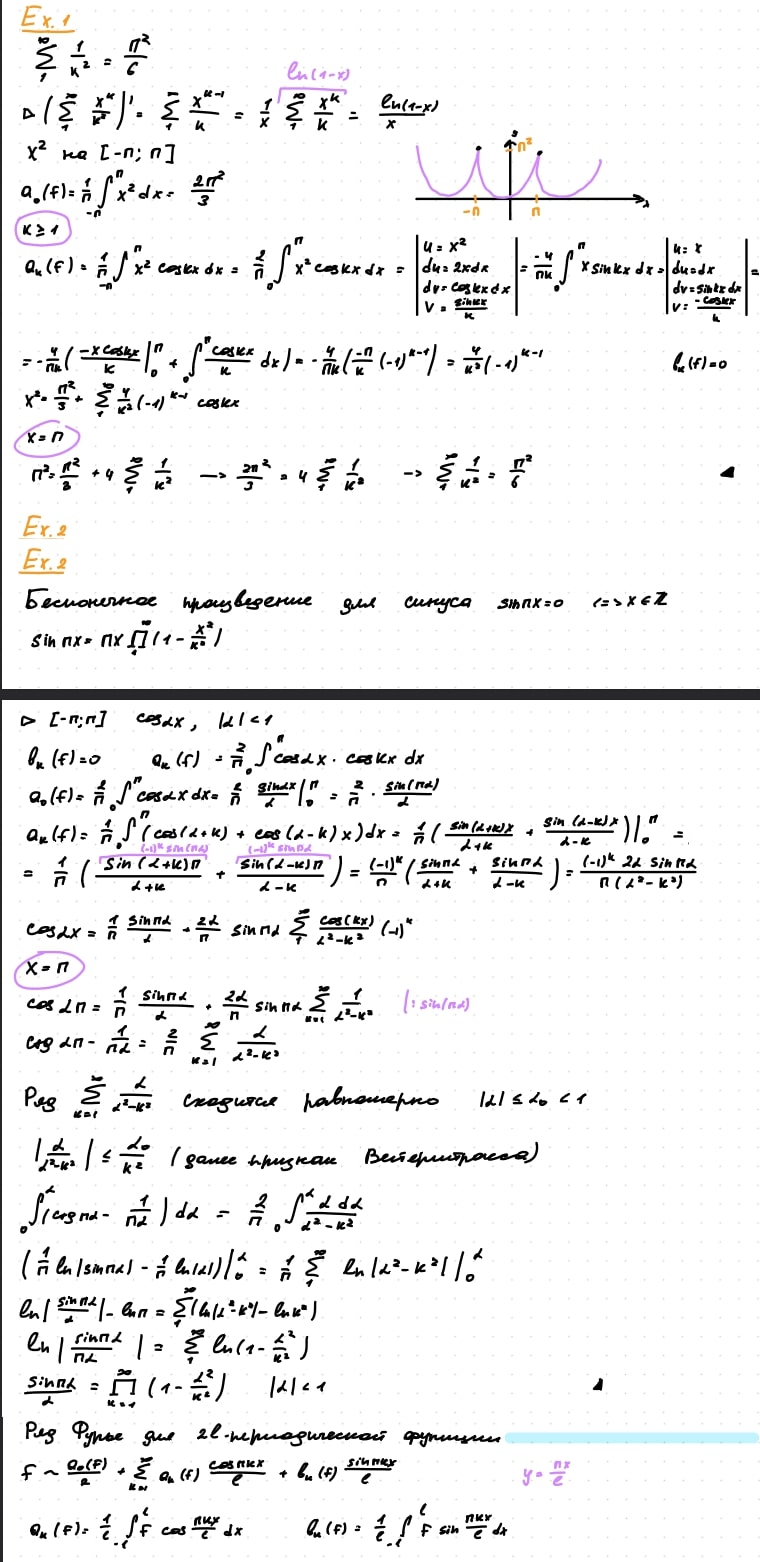 Ex. 1
∑_1^∞ 1/k² = π²/6
ln(1-x)
▷ (∑_1^∞ x^k/k²)' = ∑_1^∞ x^(k-1)/k = 1/x ∑_1^∞ x^k/k = ln(1-x)/x
x² на [-π; π]
π²
-π π
a₀(f) = 1/π ∫_-π^π x² dx = 2π²/3
k ≥ 1
aₖ(f) = 1/π ∫_-π^π x² cos kx dx = 2/π ∫_0^π x² cos kx dx = | u = x² du = 2x dx dv = cos kx dx v = sin kx/k | = -4/πk ∫_0^π x sin kx dx = | u = x du = dx dv = sin kx dx v = -cos kx/k | =
= -4/πk (-x cos kx/k |_0^π + ∫_0^π cos kx/k dx) = -4/πk (-π/k (-1)^(k-1)) = 4/k² (-1)^(k-1) bₖ(f) = 0
x² = π²/3 + ∑_1^∞ 4/k² (-1)^(k-1) cos kx
x = π
π² = π²/3 + 4 ∑_1^∞ 1/k² → 2π²/3 = 4 ∑_1^∞ 1/k² → ∑_1^∞ 1/k² = π²/6
Ex. 2
Ex. 2
Бесконечное произведение для синуса sin πx = 0 <=> x ∈ Z
sin πx = πx ∏_1^∞ (1 - x²/k²)
▷ [-π; π] cos αx, |α| < 1
bₖ(f) = 0 aₖ(f) = 2/π ∫_0^π cos αx · cos kx dx
a₀(f) = 2/π ∫_0^π cos αx dx = 2/π sin αx/α |_0^π = 2/π · sin(πα)/α
aₖ(f) = 1/π ∫_0^π (cos(α+k) + cos(α-k)x) dx = 1/π (sin(α+k)x/α+k + sin(α-k)x/α-k) |_0^π =
(-1)^k sin(πα) (-1)^k sin πα
= 1/π (sin(α+k)π/α+k + sin(α-k)π/α-k) = (-1)^k/π (sin πα/α+k + sin πα/α-k) = (-1)^k 2α sin πα/π(α²-k²)
cos αx = 1/π sin πα/α + 2α/π sin πα ∑_1^∞ cos(kx)/α²-k² (-1)^k
x = π
cos απ = 1/π sin πα/α + 2α/π sin πα ∑_k=1^∞ 1/α²-k² |: sin(πα)
ctg απ - 1/πα = 2/π ∑_k=1^∞ α/α²-k²
Ряд ∑_k=1^∞ α/α²-k² сходится равномерно |α| ≤ α₀ < 1
|α/α²-k²| ≤ α₀/k² (далее признак Вейерштрасса)
∫_0^α (ctg πα - 1/πα) dα = 2/π ∫_0^α α dα/α²-k²
(1/π ln|sin πα| - 1/π ln|α|) |_0^α = 1/π ∑_1^∞ ln|α²-k²| |_0^α
ln|sin πα/α| - ln π = ∑_1^∞ (ln|α²-k²| - ln k²)
ln|sin πα/πα| = ∑_1^∞ ln(1 - α²/k²)
sin πα/α = ∏_k=1^∞ (1 - α²/k²) |α| < 1
Ряд Фурье для 2l-периодической функции
f ~ a₀(f)/2 + ∑_k=1^∞ aₖ(f) cos πkx/l + bₖ(f) sin πkx/l y = πx/l
aₖ(f) = 1/l ∫_-l^l f cos πkx/l dx bₖ(f) = 1/l ∫_-l^l f sin πkx/l dx